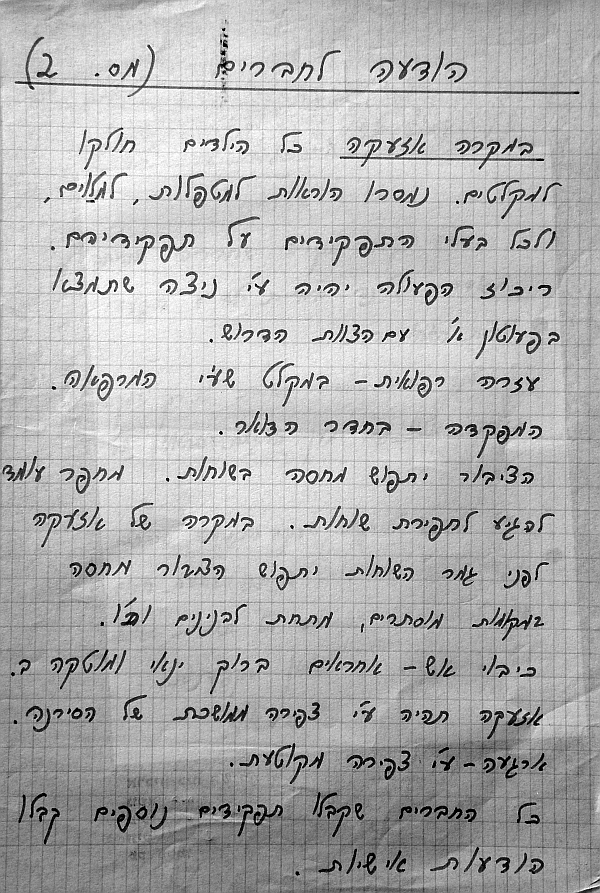 הודעה לחברים (מס. 2)
במקרה אזעקה כל הילדים חולקו
למקלטים. נמסרו הוראות למטפלות, למלוים,
ולכל בעלי התפקידים על תפקידיהם.
ריכוז הפעולה יהיה ע"י ניצה שתמצא
בפעוטון א' עם הצוות הדרוש.
עזרה רפואית - במקלט שע"י המרפאה.
המפקדה - בחדר הדואר.
הציבור יתפוש מחסה בשוחות. מחפר עומד
להגיע לחפירת שוחות. במקרה של אזעקה
לפני גמר השוחות יתפוש הציבור מחסה
במקומות מוסתרים, מתחת לבנינים וכו'.
כיבוי אש - אחראים ברוך ינאי ומוטקה ב.
אזעקה תהיה ע"י צפירה ממושכת של הסירנה.
ארגעה - ע"י צפירה מקוטעת.
כל החברים שקבלו תפקידים נוספים קבלו
הודעות אישיות.